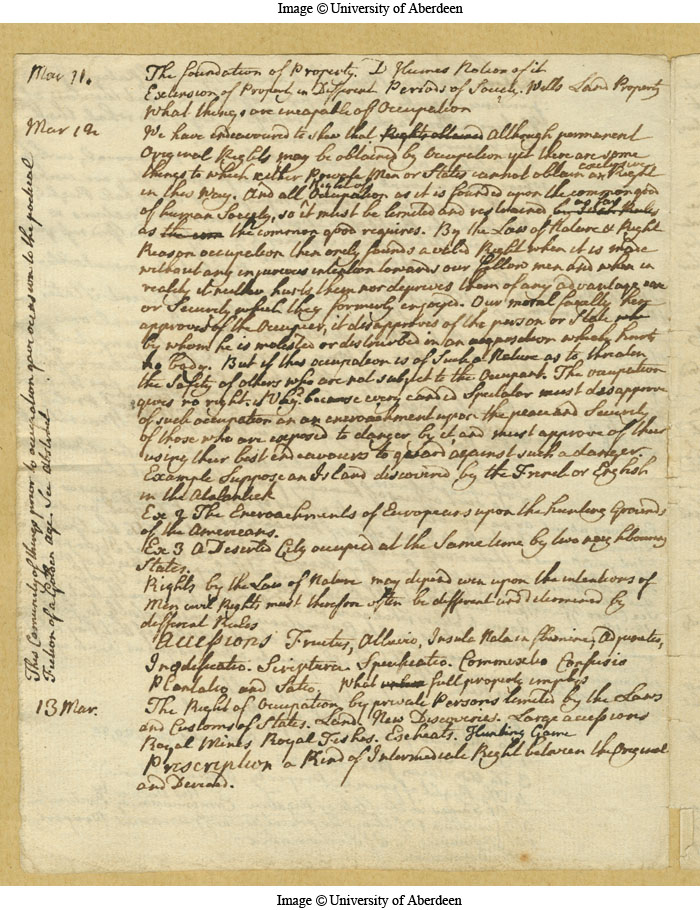 Image © University of Aberdeen
Mar 11. The foundation of Property. D Humes Notion of it
Extension of Property in Different Periods of Society. Wells Land Property
What things are incapable of Occupation
Mar 12 We have endeavoured to shew that Rights obtained Although permanent
Original Rights may be obtained by Occupation yet there are some
things to which neither Private Men or States cannot obtain an exclusive Right
in this Way. And all Right of Occupation as it is founded upon the common good
of human Society, so it must be limited and restrained by such Rules as far
as the com the common good requires. By the Law of Nature & Right
Reason occupation then onely founds a valid Right when it is made
without any injurious intention towards our fellow men and when in
reality it neither hurts them nor deprives them of any advantage
or Security which they formerly enjoyed. Our moral faculty then
approves of the Occupier, it disapproves of the person or State
by whom he is molested or disturbed in an occupation which hurts
no body. But if this occupation is of Such a Nature as to threaten
the Safety of others who are not subject to the Occupant. The occupation
gives no right. Nay because every candid Spectator must disapprove
of such occupation as an encroachment upon the peace and Security
of those who are exposed to danger by it, and must approve of their
using their best endeavours to guard against such a danger.
Example Suppose an Island discovered by the French or English
in the Atalantick
Ex 2 The Encroachments of Europeans upon the hunting Grounds
of the Americans.
Ex 3 A Deserted City occupied at the Same time by two neighbouring
States.
Rights by the Law of Nature may depend even upon the intentions of
Men civil Rights must therefore often be different and determined by
different Rules
Accessions Fructus, Alluvio, Insula Nata in flumine, Adjunctio,
Inædificatio. Scriptura Specificatio. Commixtio Confusio
Plantatio and Satio, What full property implys
13 Mar. The Right of Occupation by private Persons limited by the Laws
and Customs of States. Land. New Discoveries. Large accessions
Royal Mines Royal Fishes. Escheats. Hunting Game
Prescription a Kind of Intermediate Right between the Original
and Derived.
This Comunity of things prior to occupation gave occasion to the poetical
Fiction of a Golden age. See abstract
Image © University of Aberdeen